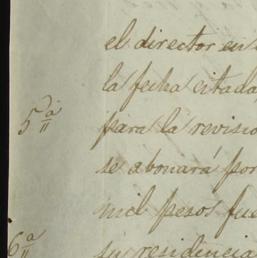 el director en
la fecha citada
5ª para la revisio
se abonará por
mil pesos fue
6ª su residencia